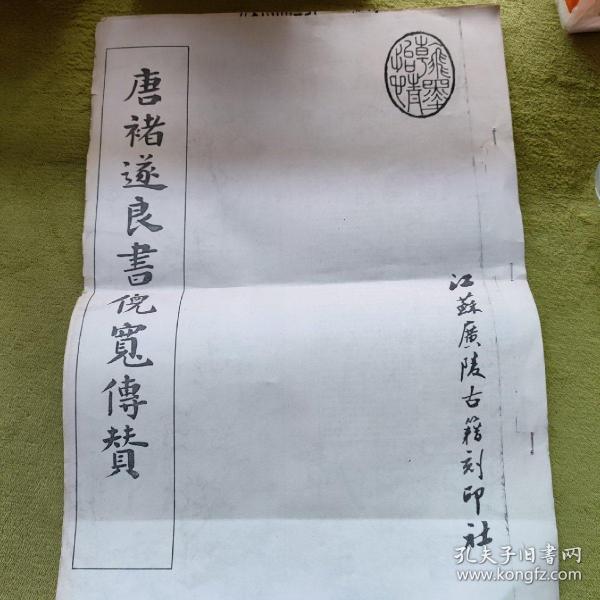 唐褚遂良書倪寬傳贊
江蘇廣陵古籍刻印社
孔夫子旧书网
www.kongfz.com